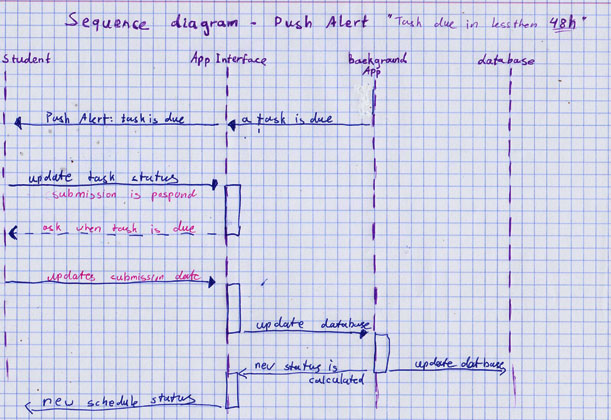 Sequence diagram - Push Alert "Task due in less then 48h"
Student App Interface background App database
Push Alert: task is due
a task is due
update task status
submission is pospond
ask when task is due
updates submission date
update database
new status is calculated
update datbase
new schedule status